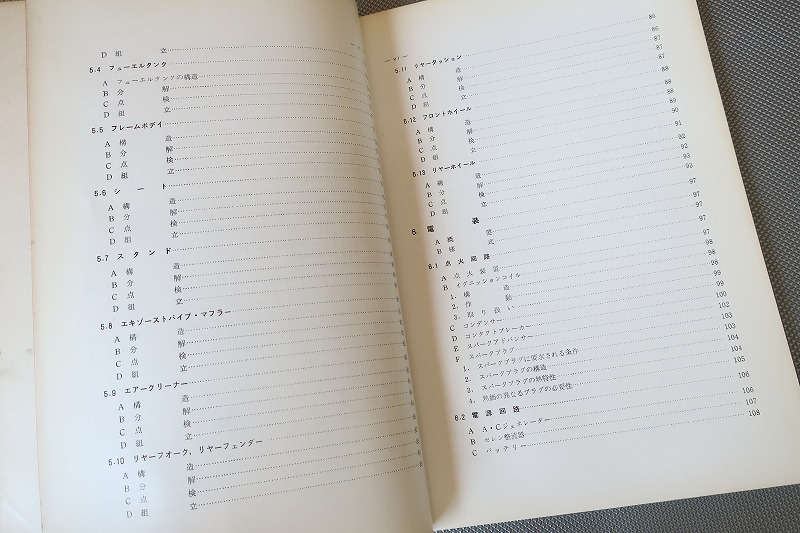 D 組 立
5.4 フューエルタンク
A フューエルタンクの構造
B 分 解
C 点 検
D 組 立
5.5 フレームボデイ
A 構 造
B 分 解
C 点 検
D 組 立
5.6 シ ー ト
A 構 造
B 分 解
C 点 検
D 組 立
5.7 ス タ ン ド
A 構 造
B 分 解
C 点 検
D 組 立
5.8 エキゾーストパイプ・マフラー
A 構 造
B 分 解
C 点 検
D 組 立
5.9 エアークリーナー
A 構 造
B 分 解
C 点 検
D 組 立
5.10 リヤーフオーク，リヤーフェンダー
A 構 造
B 分 解
C 点 検
D 組 立
— vi —
86
5.11 リヤークッション 86
A 構 造 87
B 分 解 87
C 点 検
D 組 立 88
5.12 フロントホイール
A 構 造
B 分 解
C 点 検
D 組 立
5.13 リヤーホイール
A 構 造
B 分 解
C 点 検
D 組 立
6 電 装 97
A 概 要 97
B 様 式 97
6.1 点 火 回 路
A 点 火 装 置 98
B イグニッションコイル 98
1. 構 造
2. 作 動 99
3. 取 り 扱 い
C コンデンサー 100
D コンタクトブレーカー
E スパークアドバンサー 103
F スパークプラグ
1. スパークプラグに要求される条件 104
2. スパークプラグの構造 104
3. スパークプラグの熱特性 105
4. 熱価の異なるプラグの必要性
6.2 電 源 回 路 106
A A・Cジェネレーター 106
B セレン整流器 107
C バ ッ テ リ ー 108